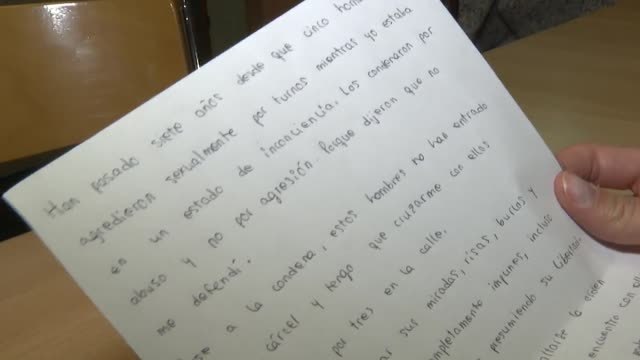 Han pasado siete años desde que cinco
agredieron sexualmente por turnos mientras yo estaba
en un estado de inconciencia. Los condenaron por
abuso y no por agresión. Porque dijeron que no
me defendí.
a la condena, estos hombres no han entrado
cárcel y tengo que cruzarme con ellos
por tres en la calle.
sus miradas, risas, burlas y
impunes, incluso
presumiendo su libertad.
la orden
con